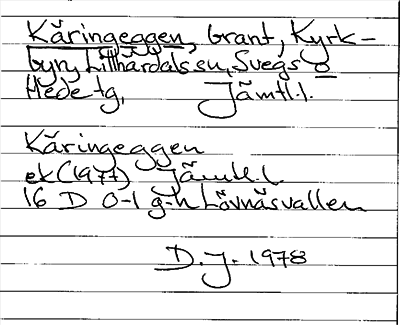 Käringeggen, brant, Kyrk-
byn, Lillhärdals sn, Svegs o
Hede tg, Jämtl.l.
Käringeggen
ek (1977) Jämtl.l
16 D 0-1 g-h Lövnäsvallen
D.J. 1978